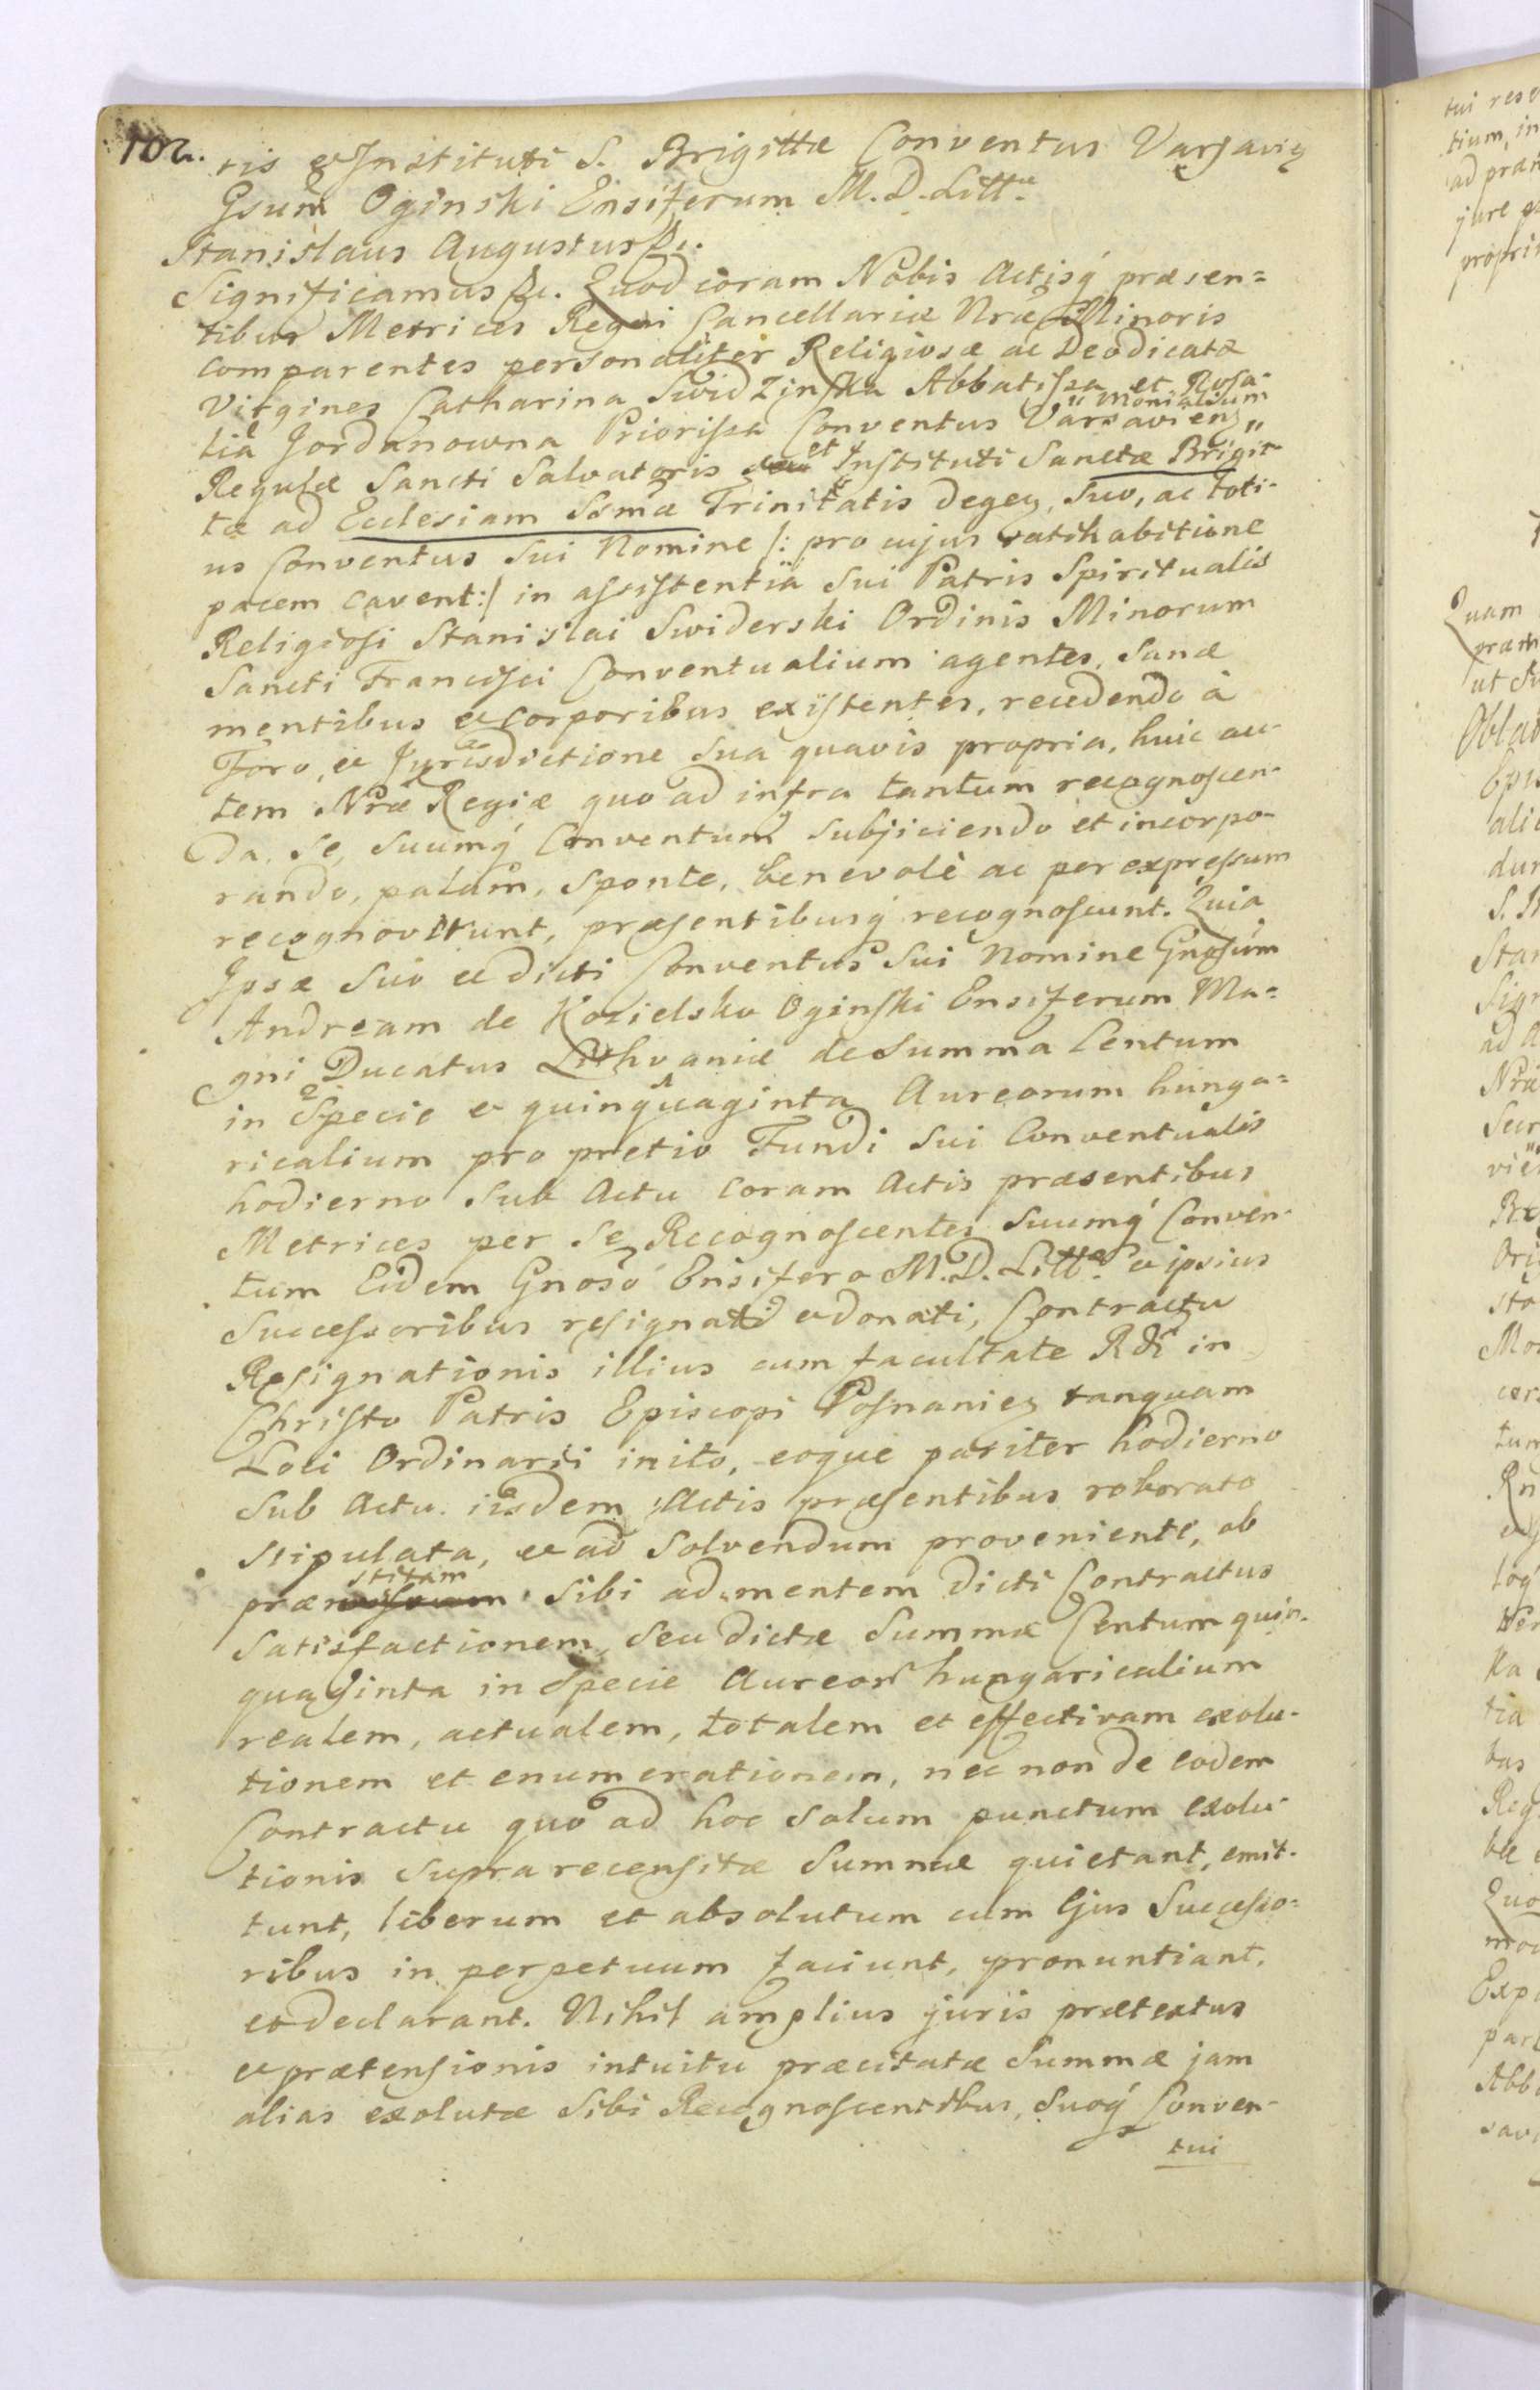 102.
ris & Instituti S. Brigittæ Conventus Varsavieɳ
Gsum Oginski Ensiferum M. D. Littæ.
Stanislaus Augustus &c.
Significamus &c. Quod coram Nobis Actisq́ præsen=
tibus Metrices Regni Cancellariæ Nræ Minoris
comparentes personaliter Religiosæ ac Deodicatæ
Virgines Catharina Swidzinska Abbatissa et Rosa-
lia Jordanowna Priorissa Conventus Monialium Varsavien„
Regulæ Sancti Salvatoris et Instituti Sanctæ Brigit-
tæ ad Ecclesiam Ssmæ Trinitatis degeɳ, suo, ac toti-
us Conventus sui Nomine /: pro cujus ratihabitione
pacem cavent :/ in assistentia sui Patris Spiritualis
Religiosi Stanislai Swiderski Ordinis Minorum
Sancti Francisci Conventualium agentes, sanæ
mentibus & corporibus existentes, recedendo à
Foro, & Jurisdictione sua quavis propria, huic au-
tem Nræ Regiæ quo ad infra tantum recognoscen-
da, se, suumq́ Conventum subjiciendo et incorpo-
rando, palam, sponte, benevolè ac per expressum
recognoverunt, præsentibusq́ recognoscunt. Quia
Ipsæ suo & dicti Conventus sui Nomine Gnosum
Andream de Kozielsko Oginski Ensiferum Ma=
gni Ducatus Lithvaniæ de Summa Centum
in Specie & quinquaginta Aureorum hunga=
ricalium pro pretio Fundi sui Conventualis
hodierno sub Actu coram Actis præsentibus
Metrices per se Recognoscentes suumq́ Conven-
tum Eidem Gnoso Ensifero M. D. Littæ & ipsius
Successoribus resignati & donati, Contractu
Resignationis illius cum facultate Rdi in
Christo Patris Episcopi Posnanieɳ tanquam
Loci Ordinarii inito, eoque pariter hodierno
sub Actu iisdem Actis præsentibus roborato
stipulata, & ad solvendum proveniente, ob
præstitam sibi ad mentem dicti Contractus
satisfactionem, seu dictæ Summæ Centum quin-
quaginta in Specie Aureor hungaricalium
realem, actualem, totalem et effectivam exolu-
tionem et enumerationem, nec non de eodem
Contractu quo ad hoc solum punctum exolu-
tionis supra recensitæ Summæ quietant, emit-
tunt, liberum et absolutum cum Ejus Successo=
ribus in perpetuum faciunt, pronuntiant,
et declarant. Nihil amplius juris prætextus
& prætensionis intuitu præcitatæ Summæ jam
alias exolutæ sibi Recognoscentibus, suoq́ Conven-
tui